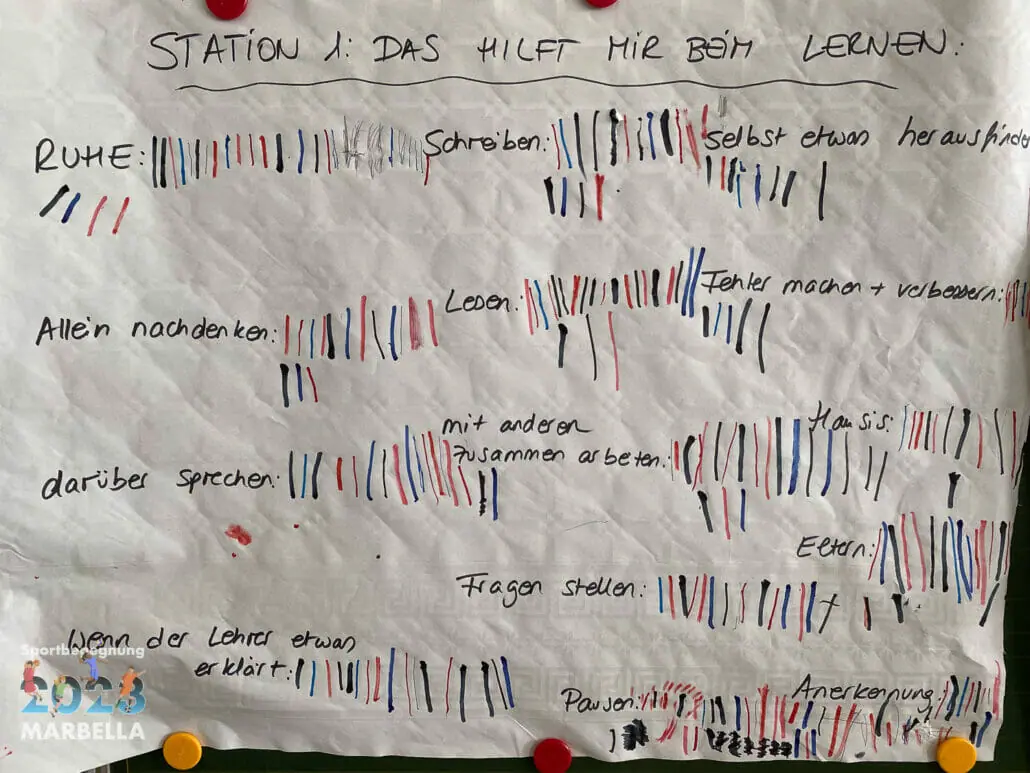 STATION 1: DAS HILFT MIR BEIM LERNEN:
RUHE:
Schreiben:
Selbst etwas herausfinde
Allein nachdenken:
Lesen:
Fehler machen + verbessern:
darüber sprechen:
mit anderen
zusammen arbeten:
Hausis:
Eltern:
Fragen stellen:
Wenn der Lehrer etwas
erklärt:
Pausen:
Anerkennung:
Sportbegegnung
2023
MARBELLA